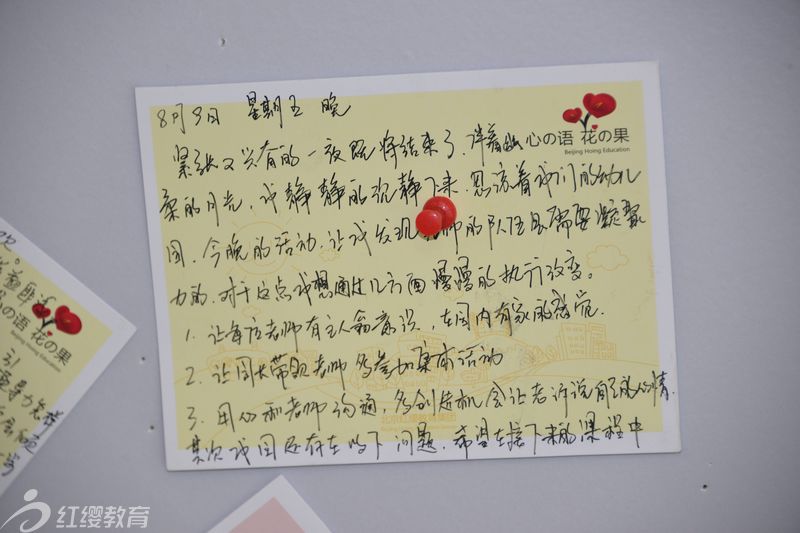 8月9日 星期五 晚
心の语 花の果
Beijing Hoing Education
紧张又兴奋的一夜既将结束了,伴着幽
柔的月光,我静静的沉静下来,思流着我们的幼儿
园,今晚的活动,让我发现老师的队伍是需要凝聚
力的,对于这点我想通过几方面慢慢的执行改变。
1. 让每位老师有主人翁意识,在园内有家的感觉.
2. 让园长带领老师多参加集体活动
3. 用心和老师沟通,多创造机会让老诉说自己的心情.
其次我园还存在以下问题,希望在接下来的课程中
の语 花の果
Hoing Education
红缨教育